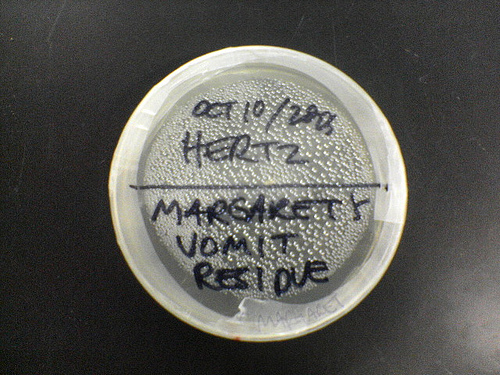 OCT 10/2003
HERTZ
MARGARET'S
VOMIT
RESIDUE
MARGARET